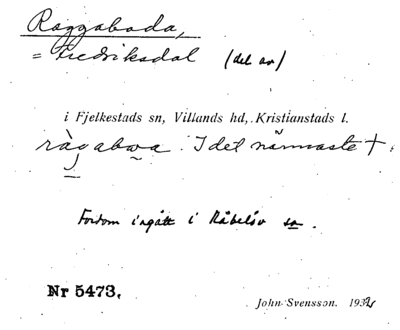 Raggaboda,
= Fredriksdal (del av)
i Fjelkestads sn, Villands hd, Kristianstads l.
ràgabωa. I det närmaste +.
Fordom ingått i Råbelöv sn.
Nr 5473.
John Svensson. 1932